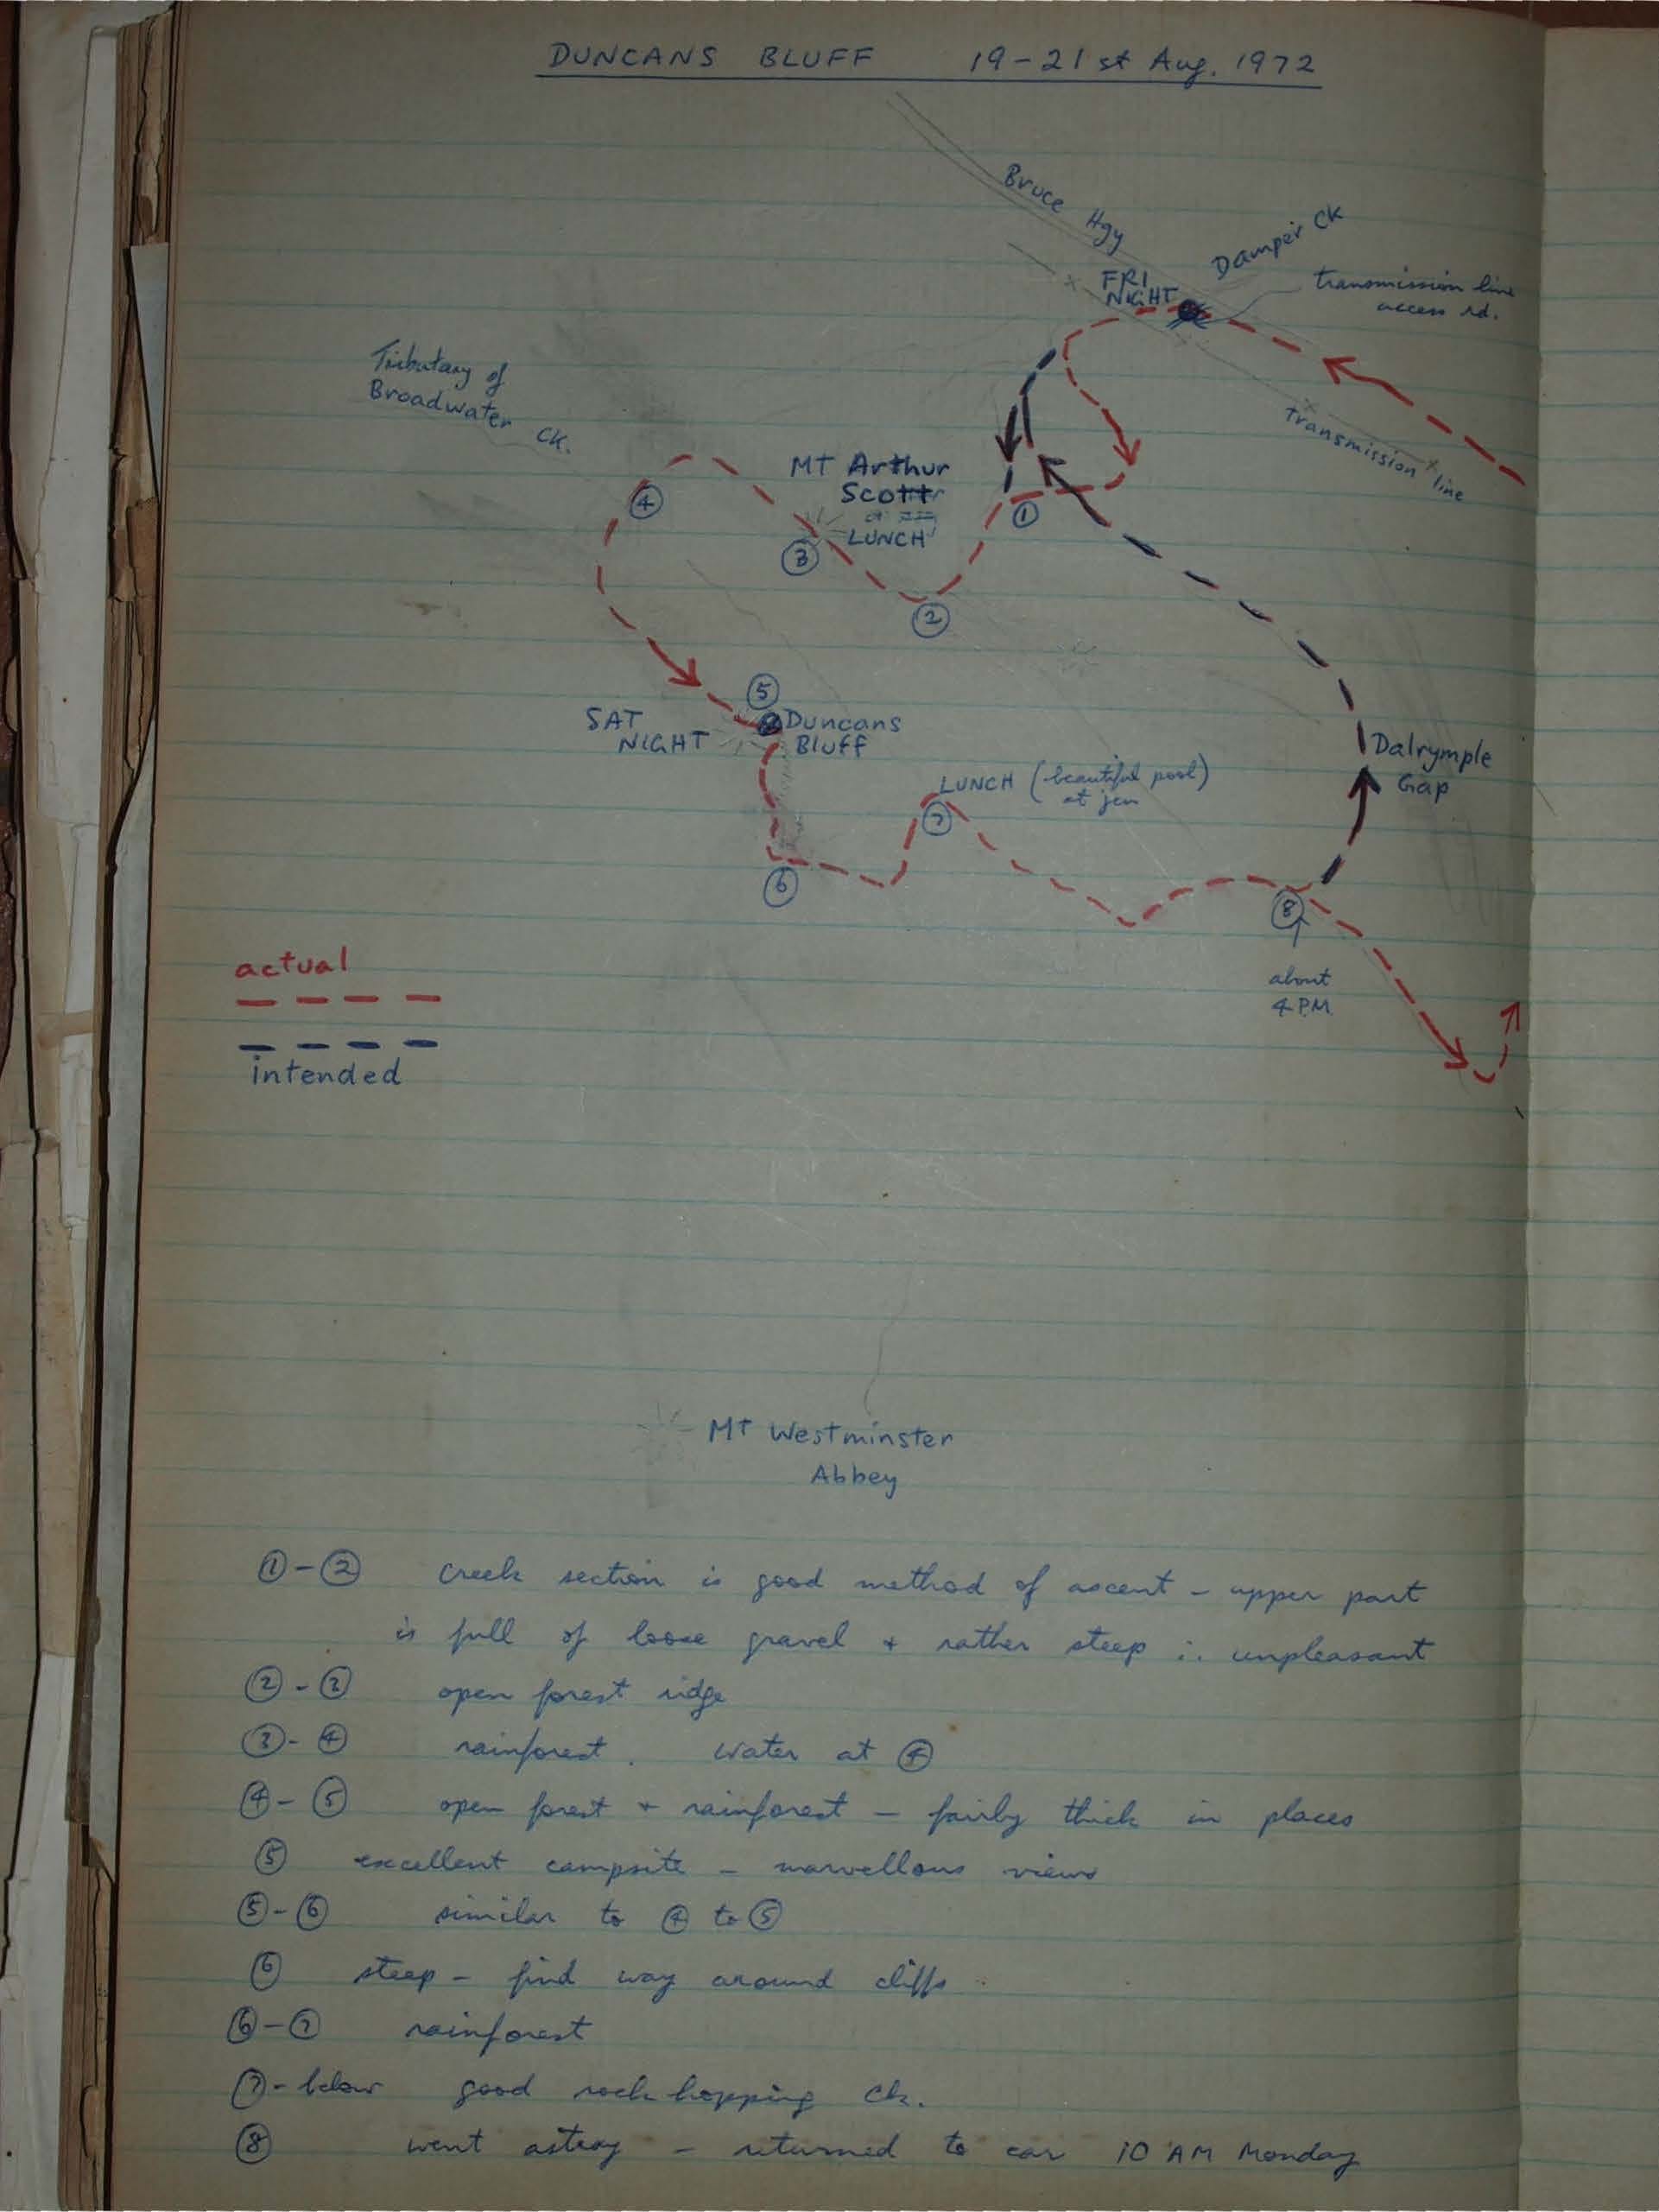 DUNCANS BLUFF 19-21st Aug. 1972
Bruce Hgy
Damper CK
FRI
NIGHT
transmission line
access rd.
Tributary of
Broadwater CK.
transmission line
MT Arthur
Scott
LUNCH
①
②
③
④
⑤
SAT
NIGHT
Duncans
Bluff
Dalrymple
Gap
LUNCH (beautiful pool)
at jcn
⑦
⑥
⑧
about
4 PM
actual
intended
MT Westminster
Abbey
①-② creek section is good method of ascent - upper part
is full of loose gravel + rather steep ∴ unpleasant
②-③ open forest ridge
③-④ rainforest. Water at ④
④-⑤ open forest + rainforest - fairly thick in places
⑤ excellent campsite - marvellous views
⑤-⑥ similar to ④ to ⑤
⑥ steep - find way around cliffs
⑥-⑦ rainforest
⑦-below good rock hopping ck.
⑧ went astray - returned to car 10 AM Monday